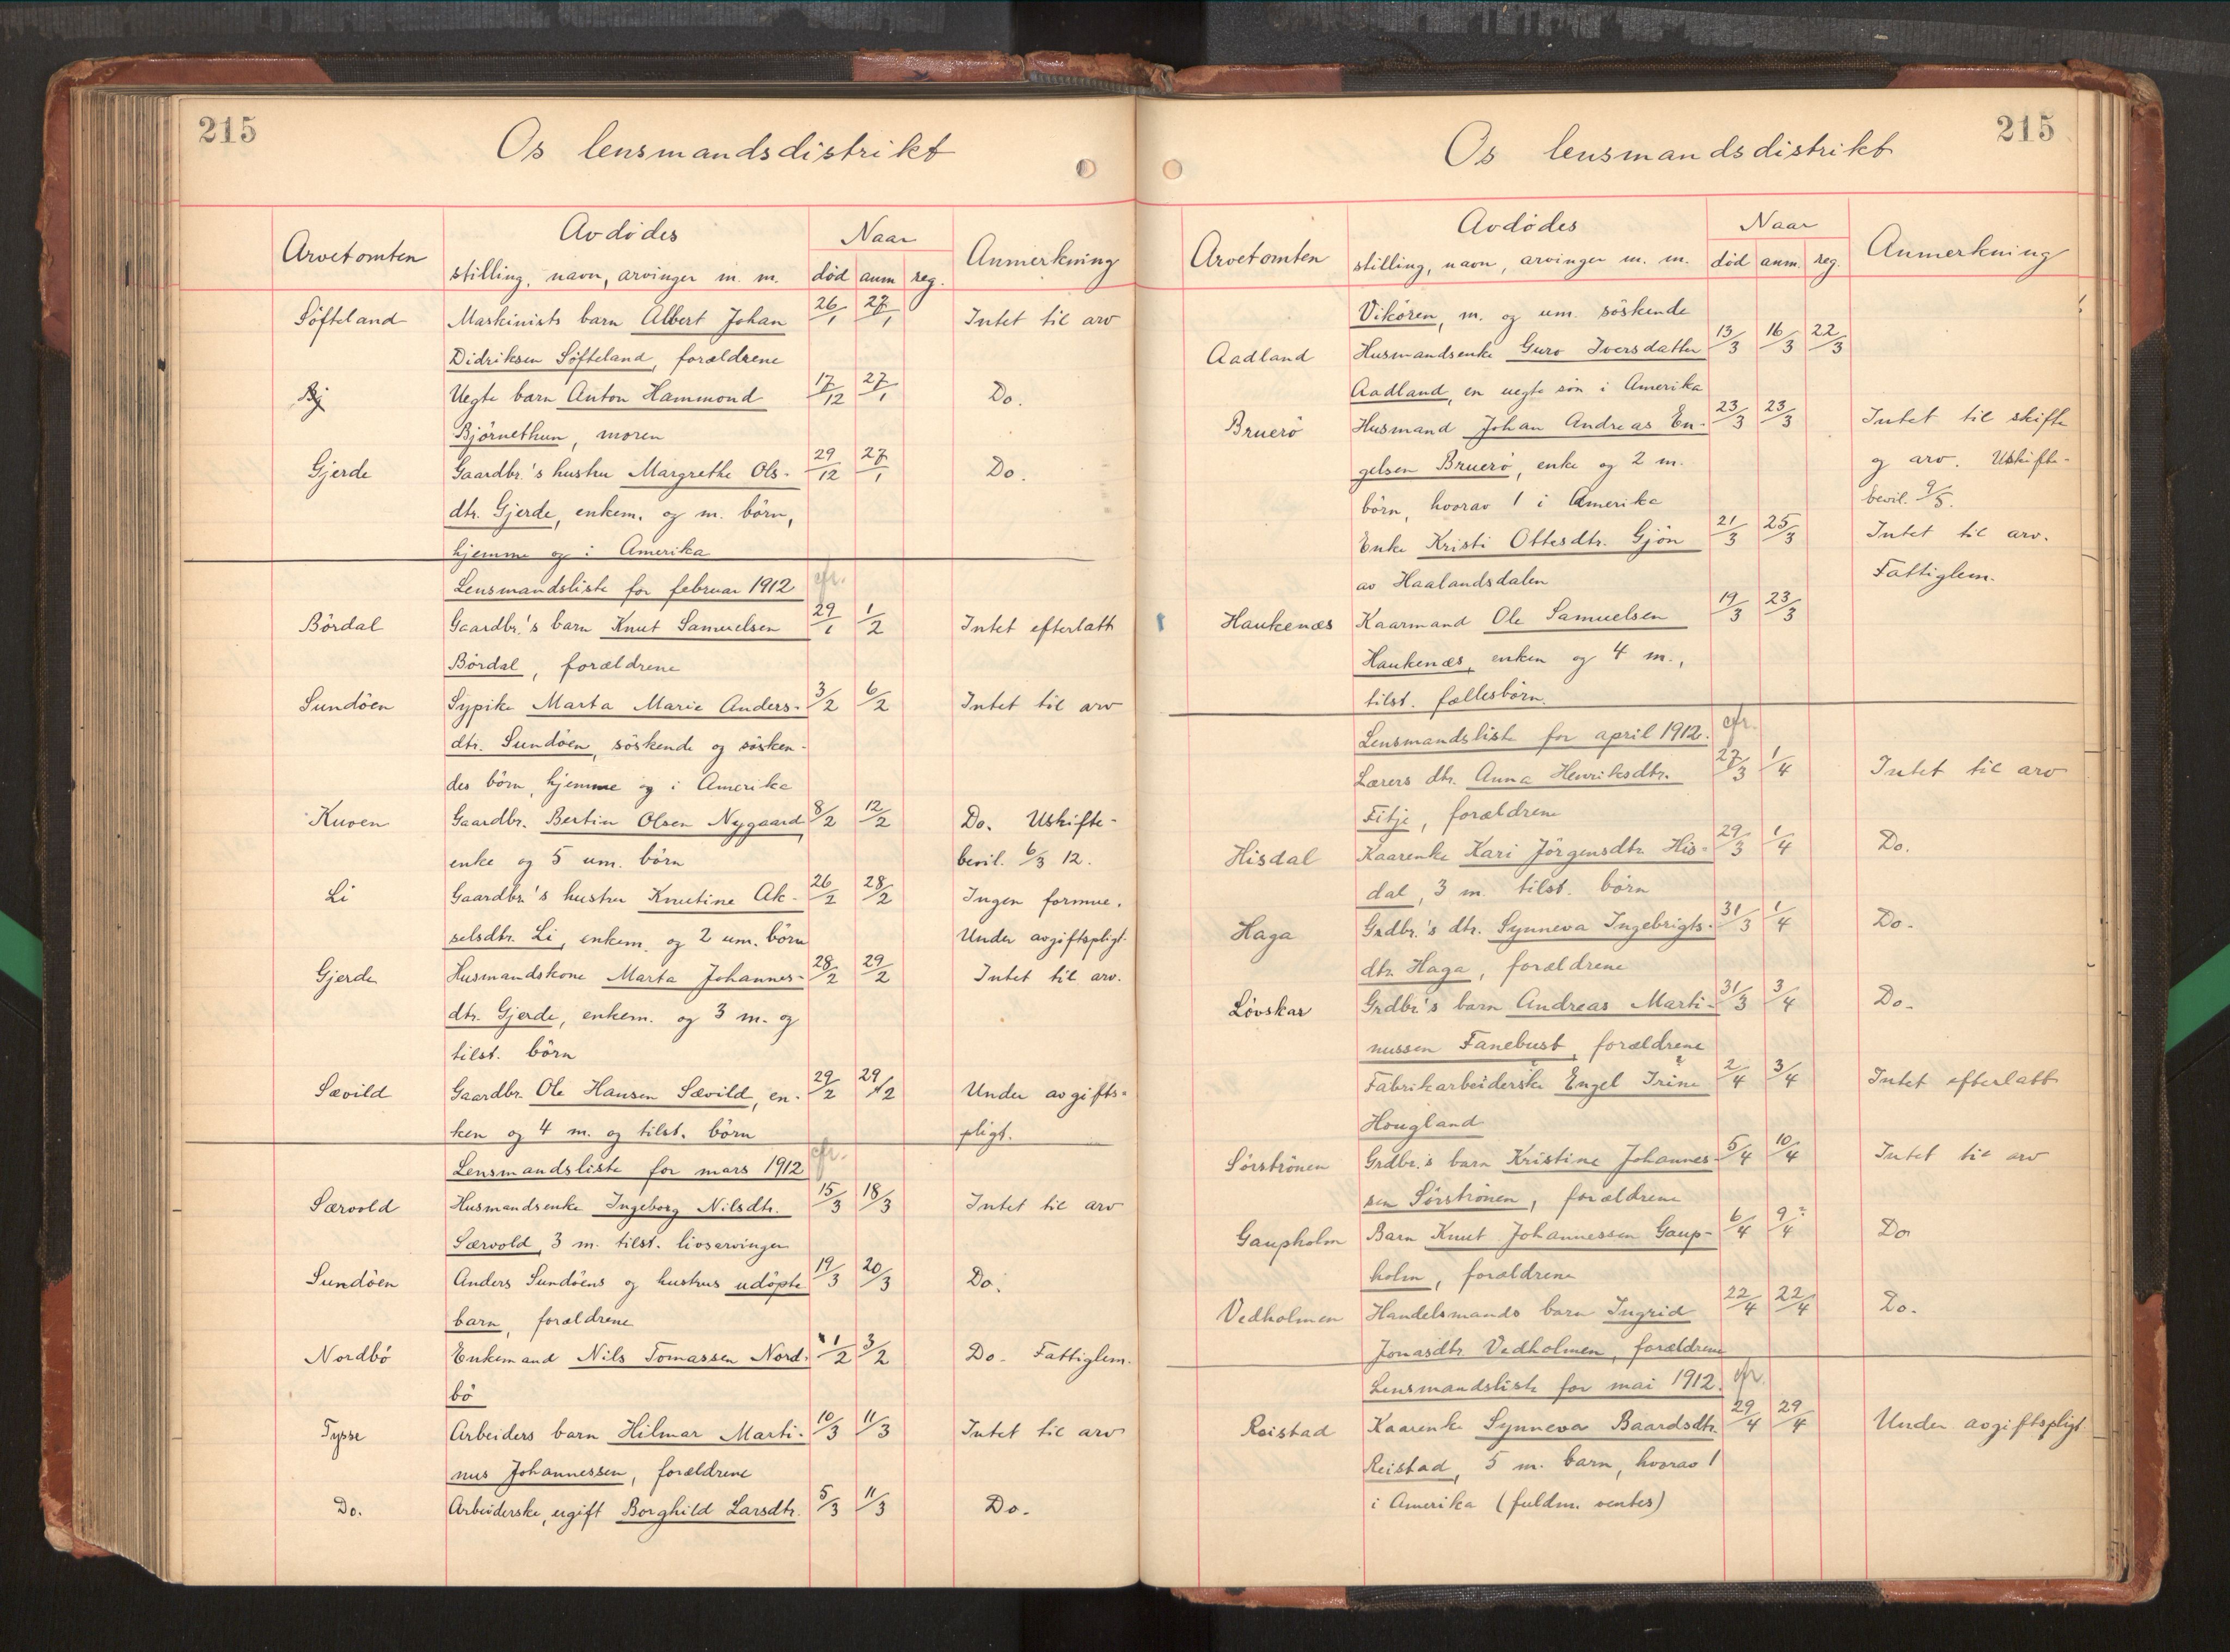 215
Os lensmandsdistrikt
Arvetomten
Avdødes
stilling, navn, arvinger m. m.
Naar
død anm reg.
Anmerkning
Søfteland Maskinists barn Albert Johan 26/1 27/1 Intet til arv
Didriksen Søfteland, forældrene
Bj Uegte barn Anton Hammond 17/12 27/1 Do.
Bjørnethun, moren
Gjerde Gaardbr.'s hustru Margrethe Ols- 29/12 27/1 Do.
dtr. Gjerde, enkem. og m. börn,
hjemme og i Amerika
Lensmandsliste for februar 1912 cfr.
Bördal Gaardbr.'s barn Knut Samuelsen 29/1 1/2 Intet efterlatt
Bördal, forældrene
Sundöen Sypike Marta Marie Anders- 3/2 6/2 Intet til arv
dtr. Sundöen, söskende og sösken-
des börn, hjemme og i Amerika
Kuven Gaardbr. Bertin Olsen Nygaard 8/2 12/2 Do. Uskifte-
enke og 5 um. börn bevil. 6/3 12.
Li Gaardbr.'s hustru Knutine Ak- 26/2 28/2 Ingen formue.
selsdtr. Li, enkem. og 2 um. börn Under avgiftspligt.
Gjerde Husmandskone Marta Johannes- 28/2 29/2 Intet til arv.
dtr. Gjerde, enkem. og 3 m. og
tilst. börn
Sævild Gaardbr. Ole Hansen Sævild, en- 29/2 29/2 Under avgifts-
ken og 4 m. og tilst. börn pligt.
Lensmandsliste for mars 1912 cfr.
Særvold Husmandsenke Ingeborg Nilsdtr. 15/3 18/3 Intet til arv
Særvold, 3 m. tilst. livsarvinger
Sundöen Anders Sundöens og hustrus udöpte 19/3 20/3 Do.
barn, forældrene
Nordbö Enkemand Nils Tomassen Nord- 1/2 3/2 Do. Fattiglem.
bö
Tysse Arbeiders barn Hilmar Marti- 10/3 11/3 Intet til arv
nus Johannessen, forældrene
Do. Arbeiderske, ugift Borghild Larsdtr. 5/3 11/3 Do.
215
Os lensmandsdistrikt
Arvetomten
Avdødes
stilling, navn, arvinger m. m.
Naar
død anm. reg.
Anmerkning
Vikören, m. og um. söskende
Aadland Husmandsenke Guro Iversdatter 13/3 16/3 22/3
Aadland, en uegte sön i Amerika
Bruerö Husmand Johan Andreas En- 23/3 23/3 Intet til skifte
gelsen Bruerö, enke og 2 m. og arv. Uskifte-
börn, hvorav 1 i Amerika bevil. 9/5.
Enke Kristi Ottesdtr. Gjön 21/3 25/3 Intet til arv.
av Haalandsdalen Fattiglem.
Haukenæs Kaarmand Ole Samuelsen 19/3 23/3
Haukenæs, enken og 4 m.,
tilst. fællesbörn.
Lensmandsliste for april 1912. cfr.
Lærers dtr. Anna Henriksdtr. 27/3 1/4 Intet til arv
Fitje, forældrene
Hisdal Kaarenke Kari Jörgensdtr. His- 29/3 1/4 Do.
dal, 3 m. tilst. börn
Haga Grdbr.'s dtr. Synneva Ingebrigts- 31/3 1/4 Do.
dtr. Haga, forældrene
Lövskar Grdbr's barn Andreas Marti- 31/3 3/4 Do.
nussen Fanebust, forældrene
Fabrikarbeiderske Engel Irine 2/4 3/4 Intet efterlatt
Hougland
Sörströnen Grdbr.'s barn Kristine Johannes- 5/4 10/4 Intet til arv
sen Sörströnen, forældrene
Gaupholm Barn Knut Johannessen Gaup- 6/4 9/4 Do
holm, forældrene
Vedholmen Handelsmands barn Ingrid 22/4 22/4 Do.
Jonasdtr. Vedholmen, forældrene
Lensmandsliste for mai 1912. cfr.
Reistad Kaarenke Synneva Baardsdtr. 29/4 29/4 Under avgiftspligt
Reistad, 5 m. barn, hvorav 1
i Amerika (fuldm. ventes)